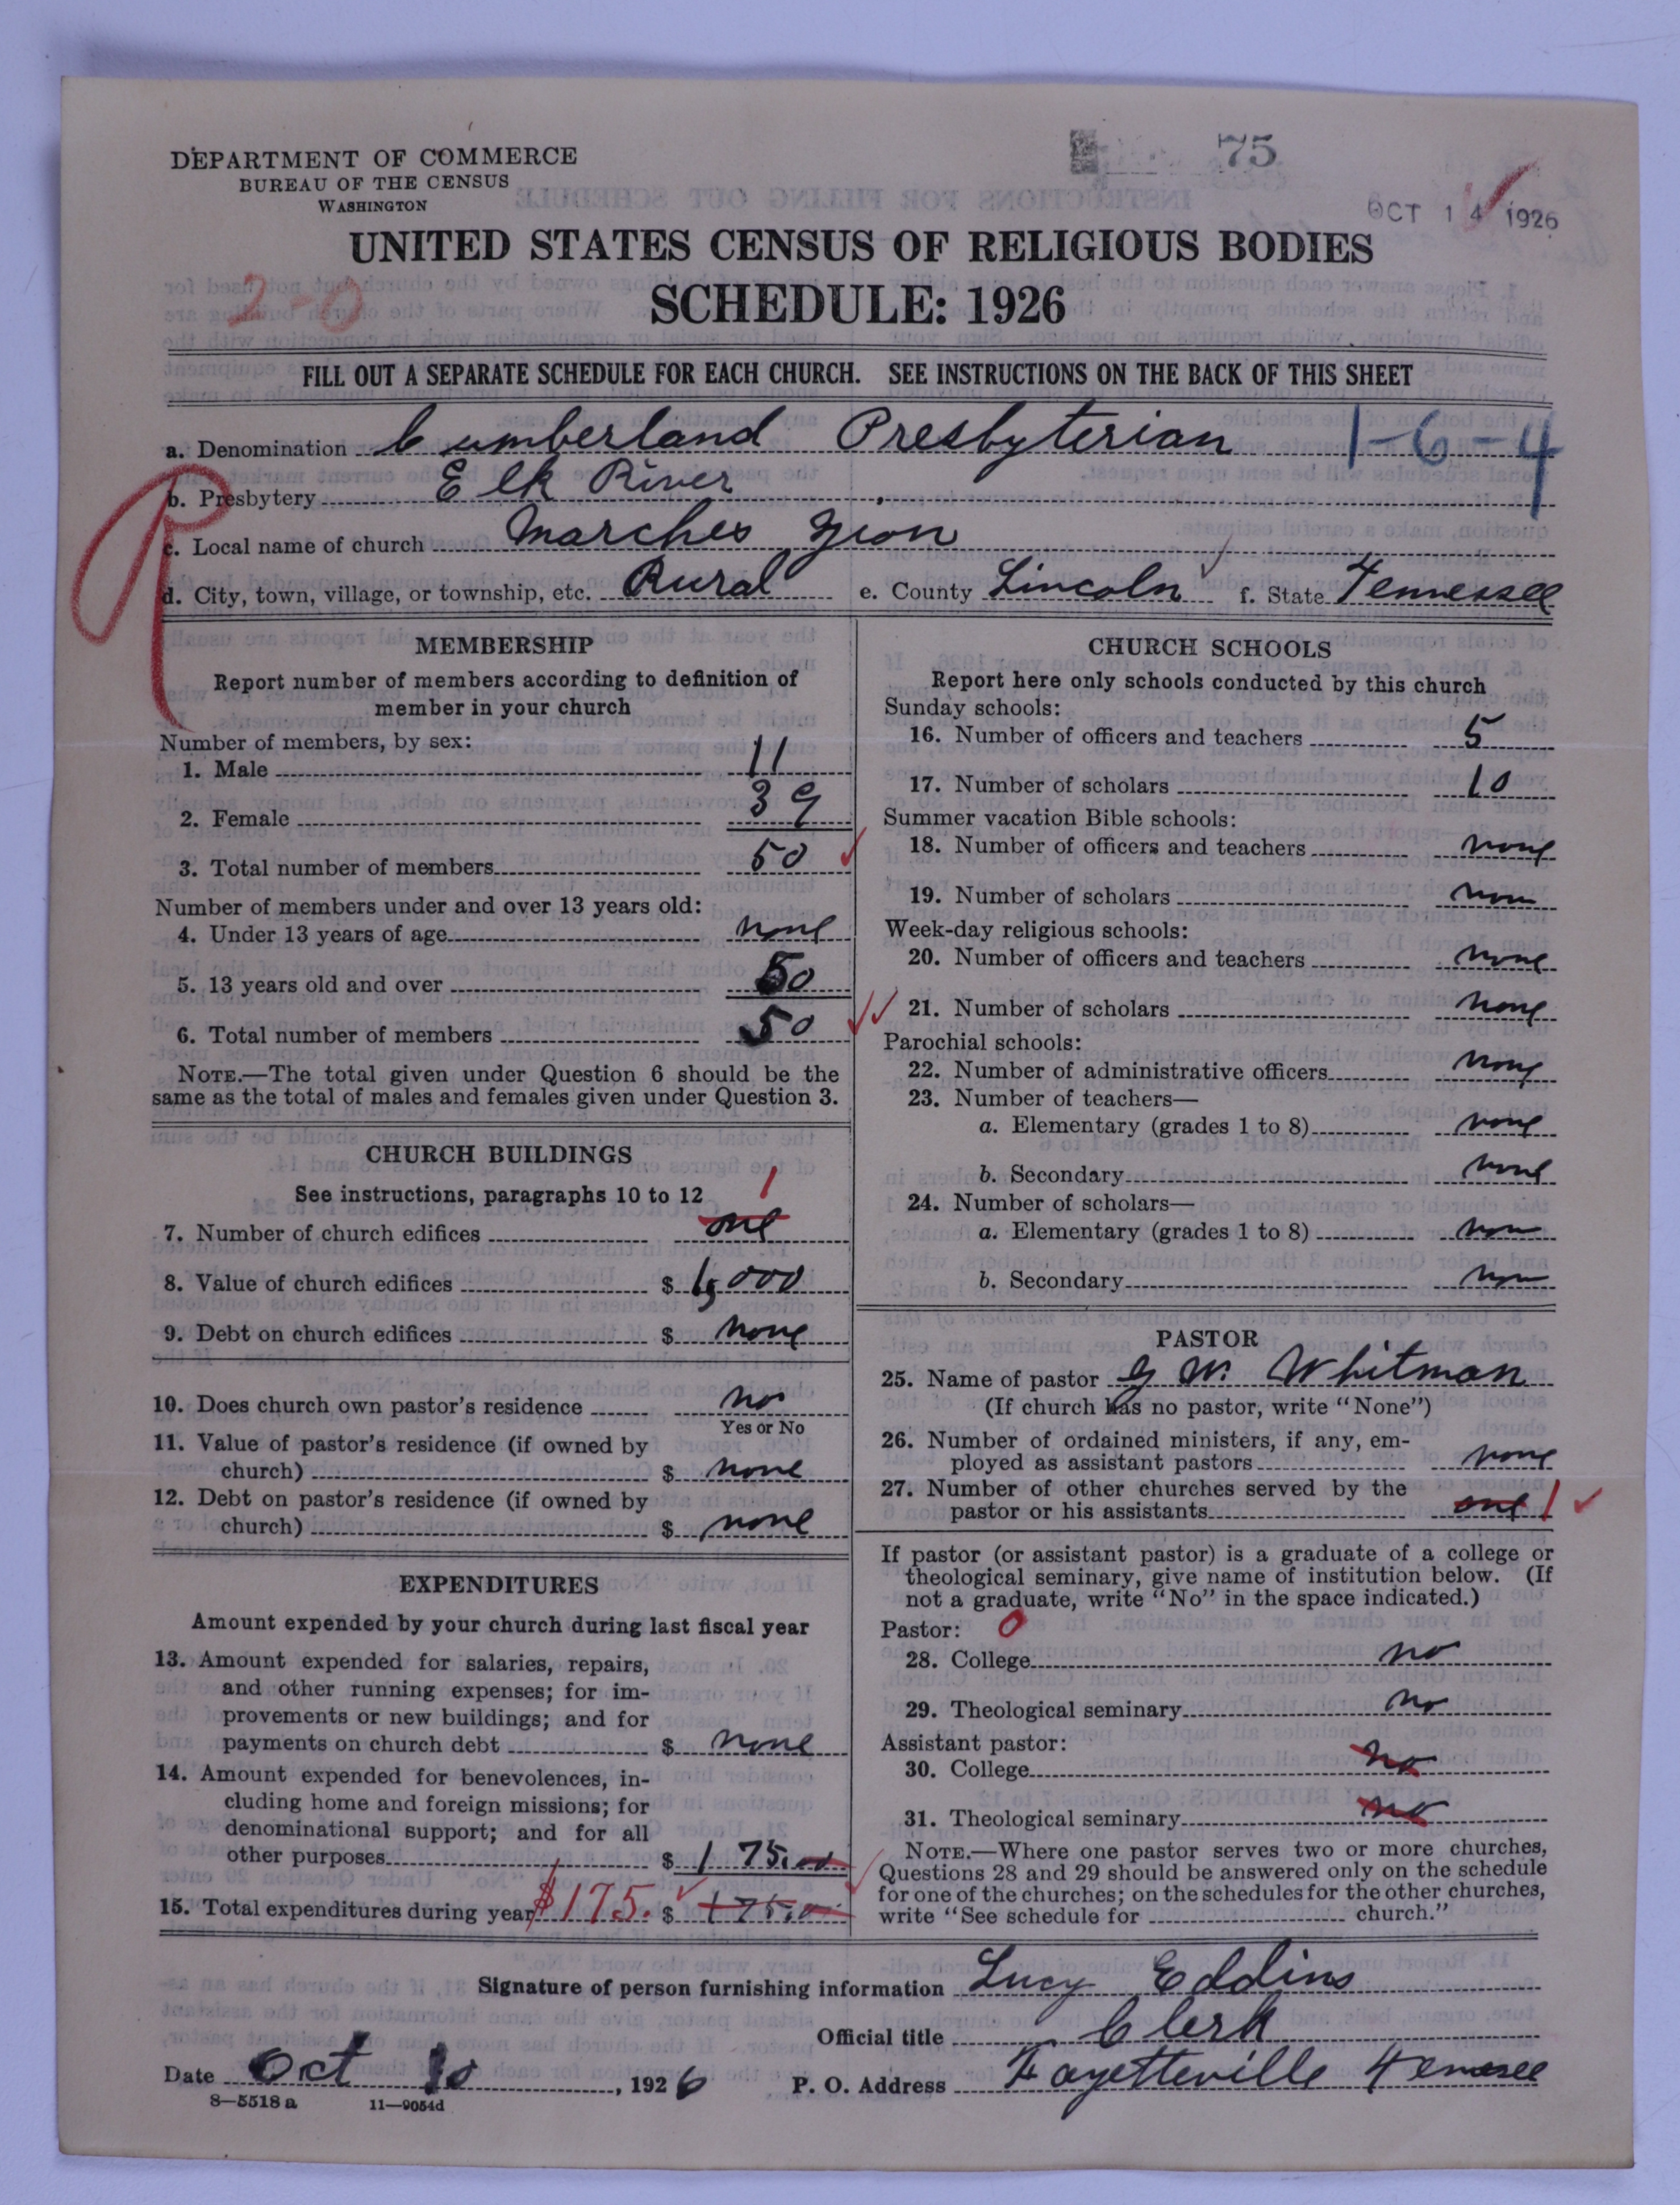 75
DEPARTMENT OF COMMERCE
BUREAU OF THE CENSUS
WASHINGTON
OCT 14 1926
UNITED STATES CENSUS OF RELIGIOUS BODIES
2-0
SCHEDULE: 1926
FILL OUT A SEPARATE SCHEDULE FOR EACH CHURCH. SEE INSTRUCTIONS ON THE BACK OF THIS SHEET
a. Denomination Cumberland Presbyterian 1-6-4
R
b. Presbytery Elk River
c. Local name of church Marches Zion
d. City, town, village, or township, etc. Rural e. County Lincoln f. State Tennessee
MEMBERSHIP
Report number of members according to definition of
member in your church
Number of members, by sex:
1. Male 11
2. Female 39
3. Total number of members 50
Number of members under and over 13 years old:
4. Under 13 years of age none
5. 13 years old and over 50
6. Total number of members 50
NOTE.—The total given under Question 6 should be the
same as the total of males and females given under Question 3.
CHURCH BUILDINGS
See instructions, paragraphs 10 to 12 1
7. Number of church edifices one
8. Value of church edifices $
9. Debt on church edifices $ none
10. Does church own pastor's residence no
Yes or No
11. Value of pastor's residence (if owned by
church) $ none
12. Debt on pastor's residence (if owned by
church) $ none
EXPENDITURES
Amount expended by your church during last fiscal year
13. Amount expended for salaries, repairs,
and other running expenses; for im-
provements or new buildings; and for
payments on church debt $ none
14. Amount expended for benevolences, in-
cluding home and foreign missions; for
denominational support; and for all
other purposes $ 175.00
15. Total expenditures during year $175. $ 175.00
CHURCH SCHOOLS
Report here only schools conducted by this church
Sunday schools:
16. Number of officers and teachers 5
17. Number of scholars 10
Summer vacation Bible schools:
18. Number of officers and teachers none
19. Number of scholars none
Week-day religious schools:
20. Number of officers and teachers none
21. Number of scholars none
Parochial schools:
22. Number of administrative officers none
23. Number of teachers—
a. Elementary (grades 1 to 8) none
b. Secondary none
24. Number of scholars—
a. Elementary (grades 1 to 8) none
b. Secondary none
PASTOR
25. Name of pastor W. Whitman
(If church has no pastor, write "None")
26. Number of ordained ministers, if any, em-
ployed as assistant pastors none
27. Number of other churches served by the
pastor or his assistants one 1
If pastor (or assistant pastor) is a graduate of a college or
theological seminary, give name of institution below. (If
not a graduate, write "No" in the space indicated.)
Pastor: 0
28. College no
29. Theological seminary no
Assistant pastor:
30. College no
31. Theological seminary no
NOTE.—Where one pastor serves two or more churches,
Questions 28 and 29 should be answered only on the schedule
for one of the churches; on the schedules for the other churches,
write "See schedule for church."
Signature of person furnishing information Lucy Eddins
Official title Clerk
Date Oct 10, 1926 P. O. Address Fayetteville Tennessee
8—5518 a 11—9054d